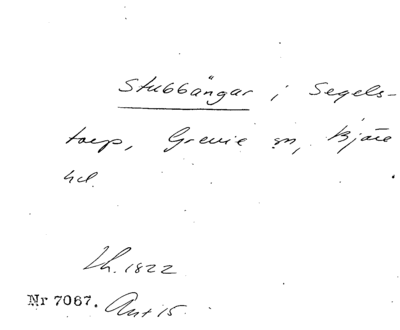 Stubbängar i Segels-
torp, Grevie sn, Bjäre
hd.
Lh. 1822
Nr 7067. Ant 15.